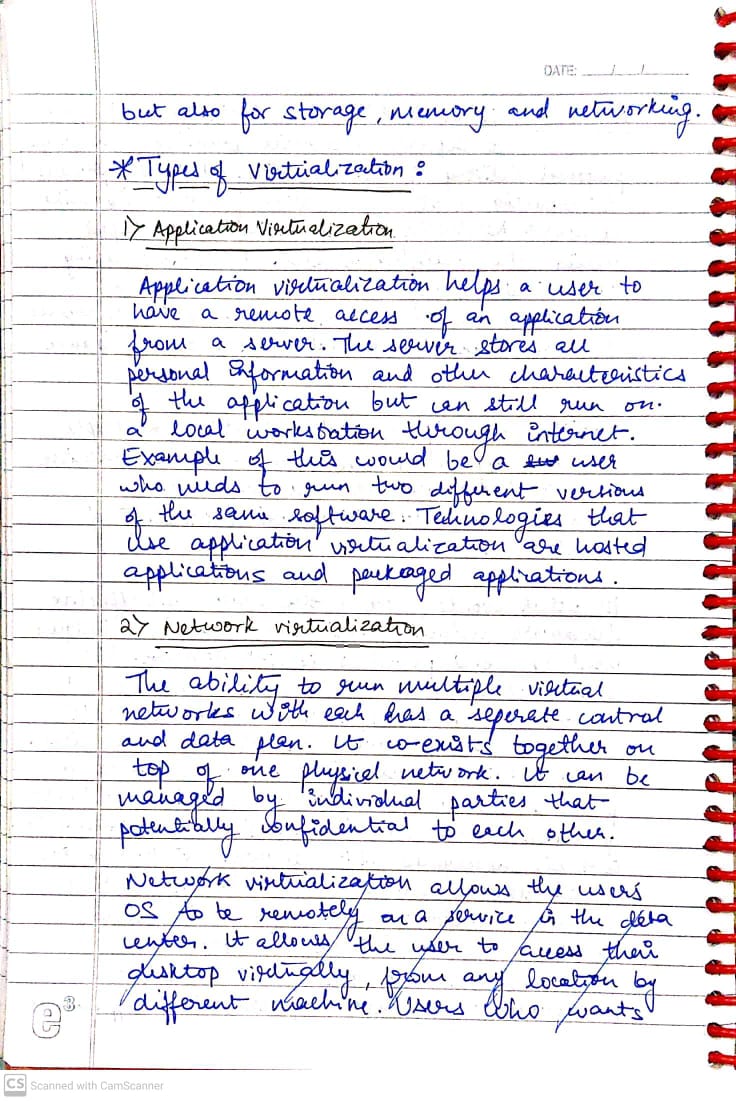 DATE: __/__/____
but also for storage, memory and networking.
* Types of Virtualization :
1) Application Virtualization
Application virtualization helps a user to
have a remote access of an application
from a server. The server stores all
personal Information and other characteristics
of the application but can still run on
a local workstation through internet.
Example of this would be a user
who needs to run two different versions
of the same software. Technologies that
Use application virtualization are hosted
applications and packaged applications.
2) Network virtualization
The ability to run multiple virtual
networks with each has a seperate control
and data plan. It co-exists together on
top of one physical network. It can be
managed by individual parties that
potentially confidential to each other.
Network virtualization allows the users
OS to be remotely on a service in the data
center. It allows the user to access their
desktop virtually, from any location by
different machine. Users who wants
e3
CS Scanned with CamScanner